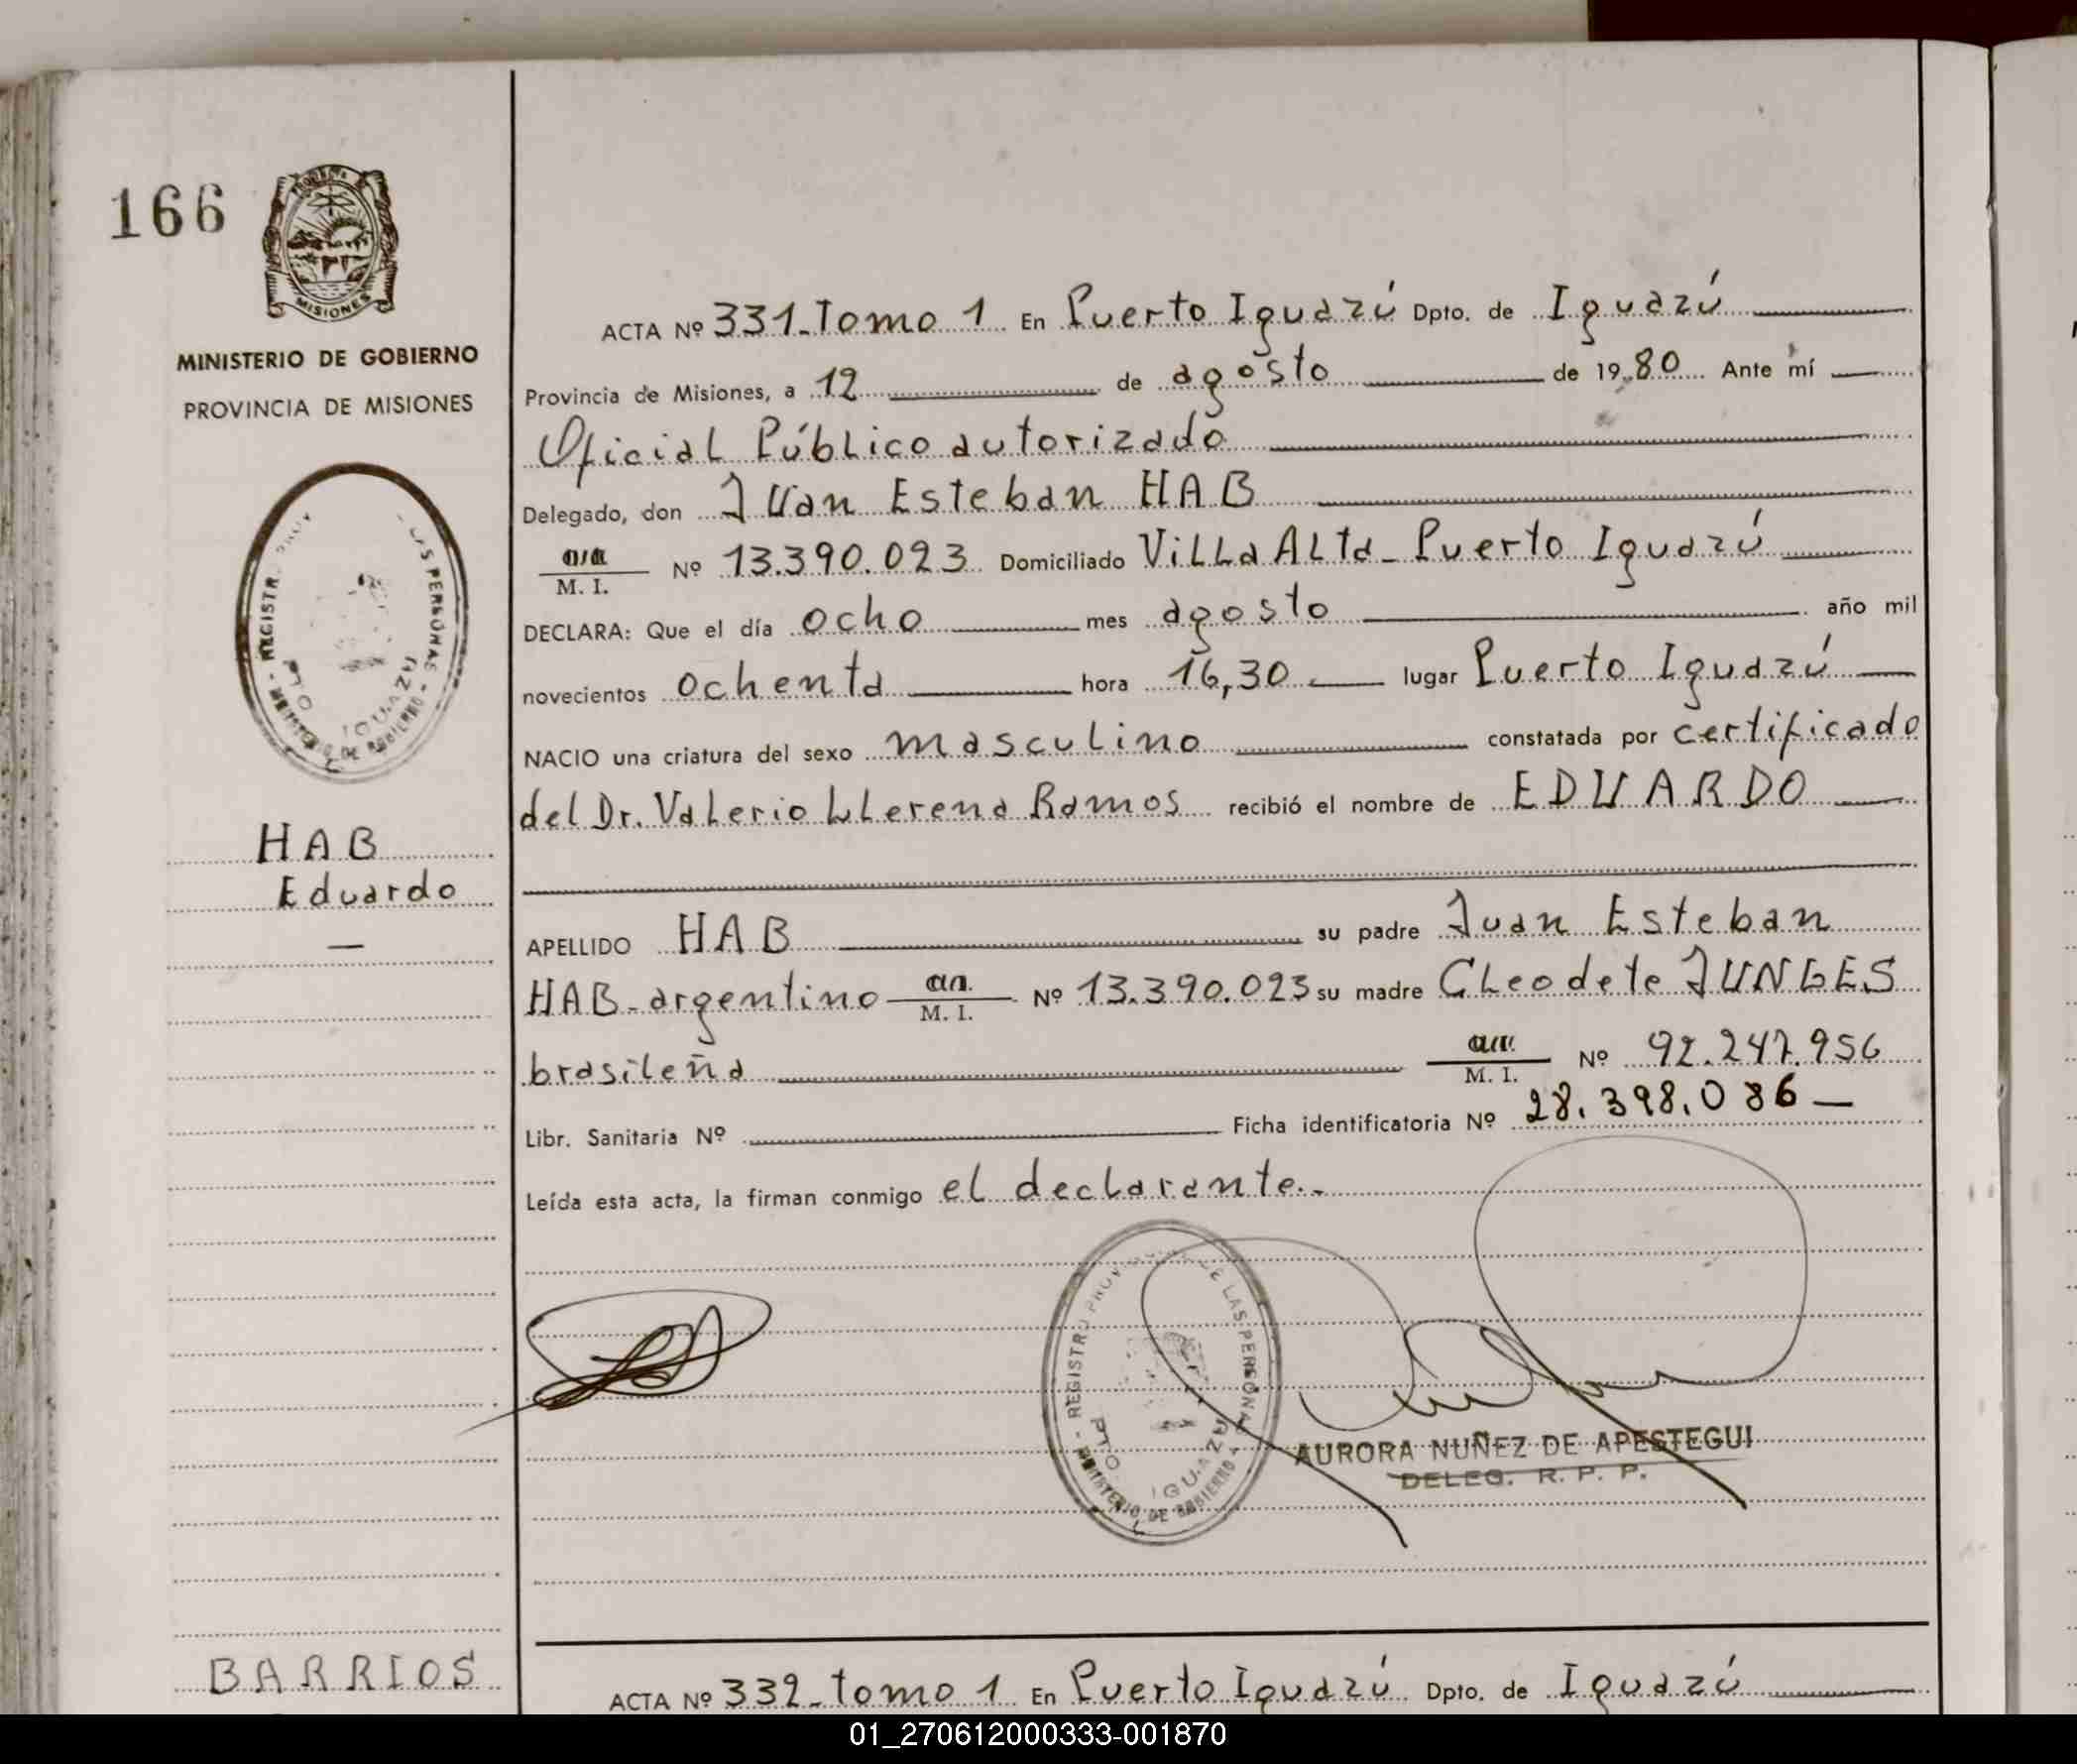 166
MISIONES
MINISTERIO DE GOBIERNO
PROVINCIA DE MISIONES
HAB
Eduardo
—
BARRIOS
ACTA Nº 331-Tomo 1 En Puerto Iguazú Dpto. de Iguazú
Provincia de Misiones, a 12 de agosto de 1980 Ante mí
Oficial Público autorizado
Delegado, don Juan Esteban HAB
M. I. Nº 13.390.023 Domiciliado Villa Alta - Puerto Iguazú
DECLARA: Que el día ocho mes agosto año mil
novecientos ochenta hora 16,30 lugar Puerto Iguazú
NACIO una criatura del sexo masculino constatada por certificado
del Dr. Valerio Llerena Ramos recibió el nombre de EDUARDO
APELLIDO HAB su padre Juan Esteban
HAB - argentino M. I. Nº 13.390.023 su madre Cleodete JUNGES
brasileña M. I. Nº 92.247.956
Libr. Sanitaria Nº Ficha identificatoria Nº 28.398.086 —
Leída esta acta, la firman conmigo el declarante.-
REGISTRO PROV DE LAS PERSONAS - MINISTERIO DE GOBIERNO
PTO IGUAZU
AURORA NUÑEZ DE APESTEGUI
DELEG. R. P. P.
ACTA Nº 332-tomo 1 En Puerto Iguazú Dpto. de Iguazú
01_270612000333-001870